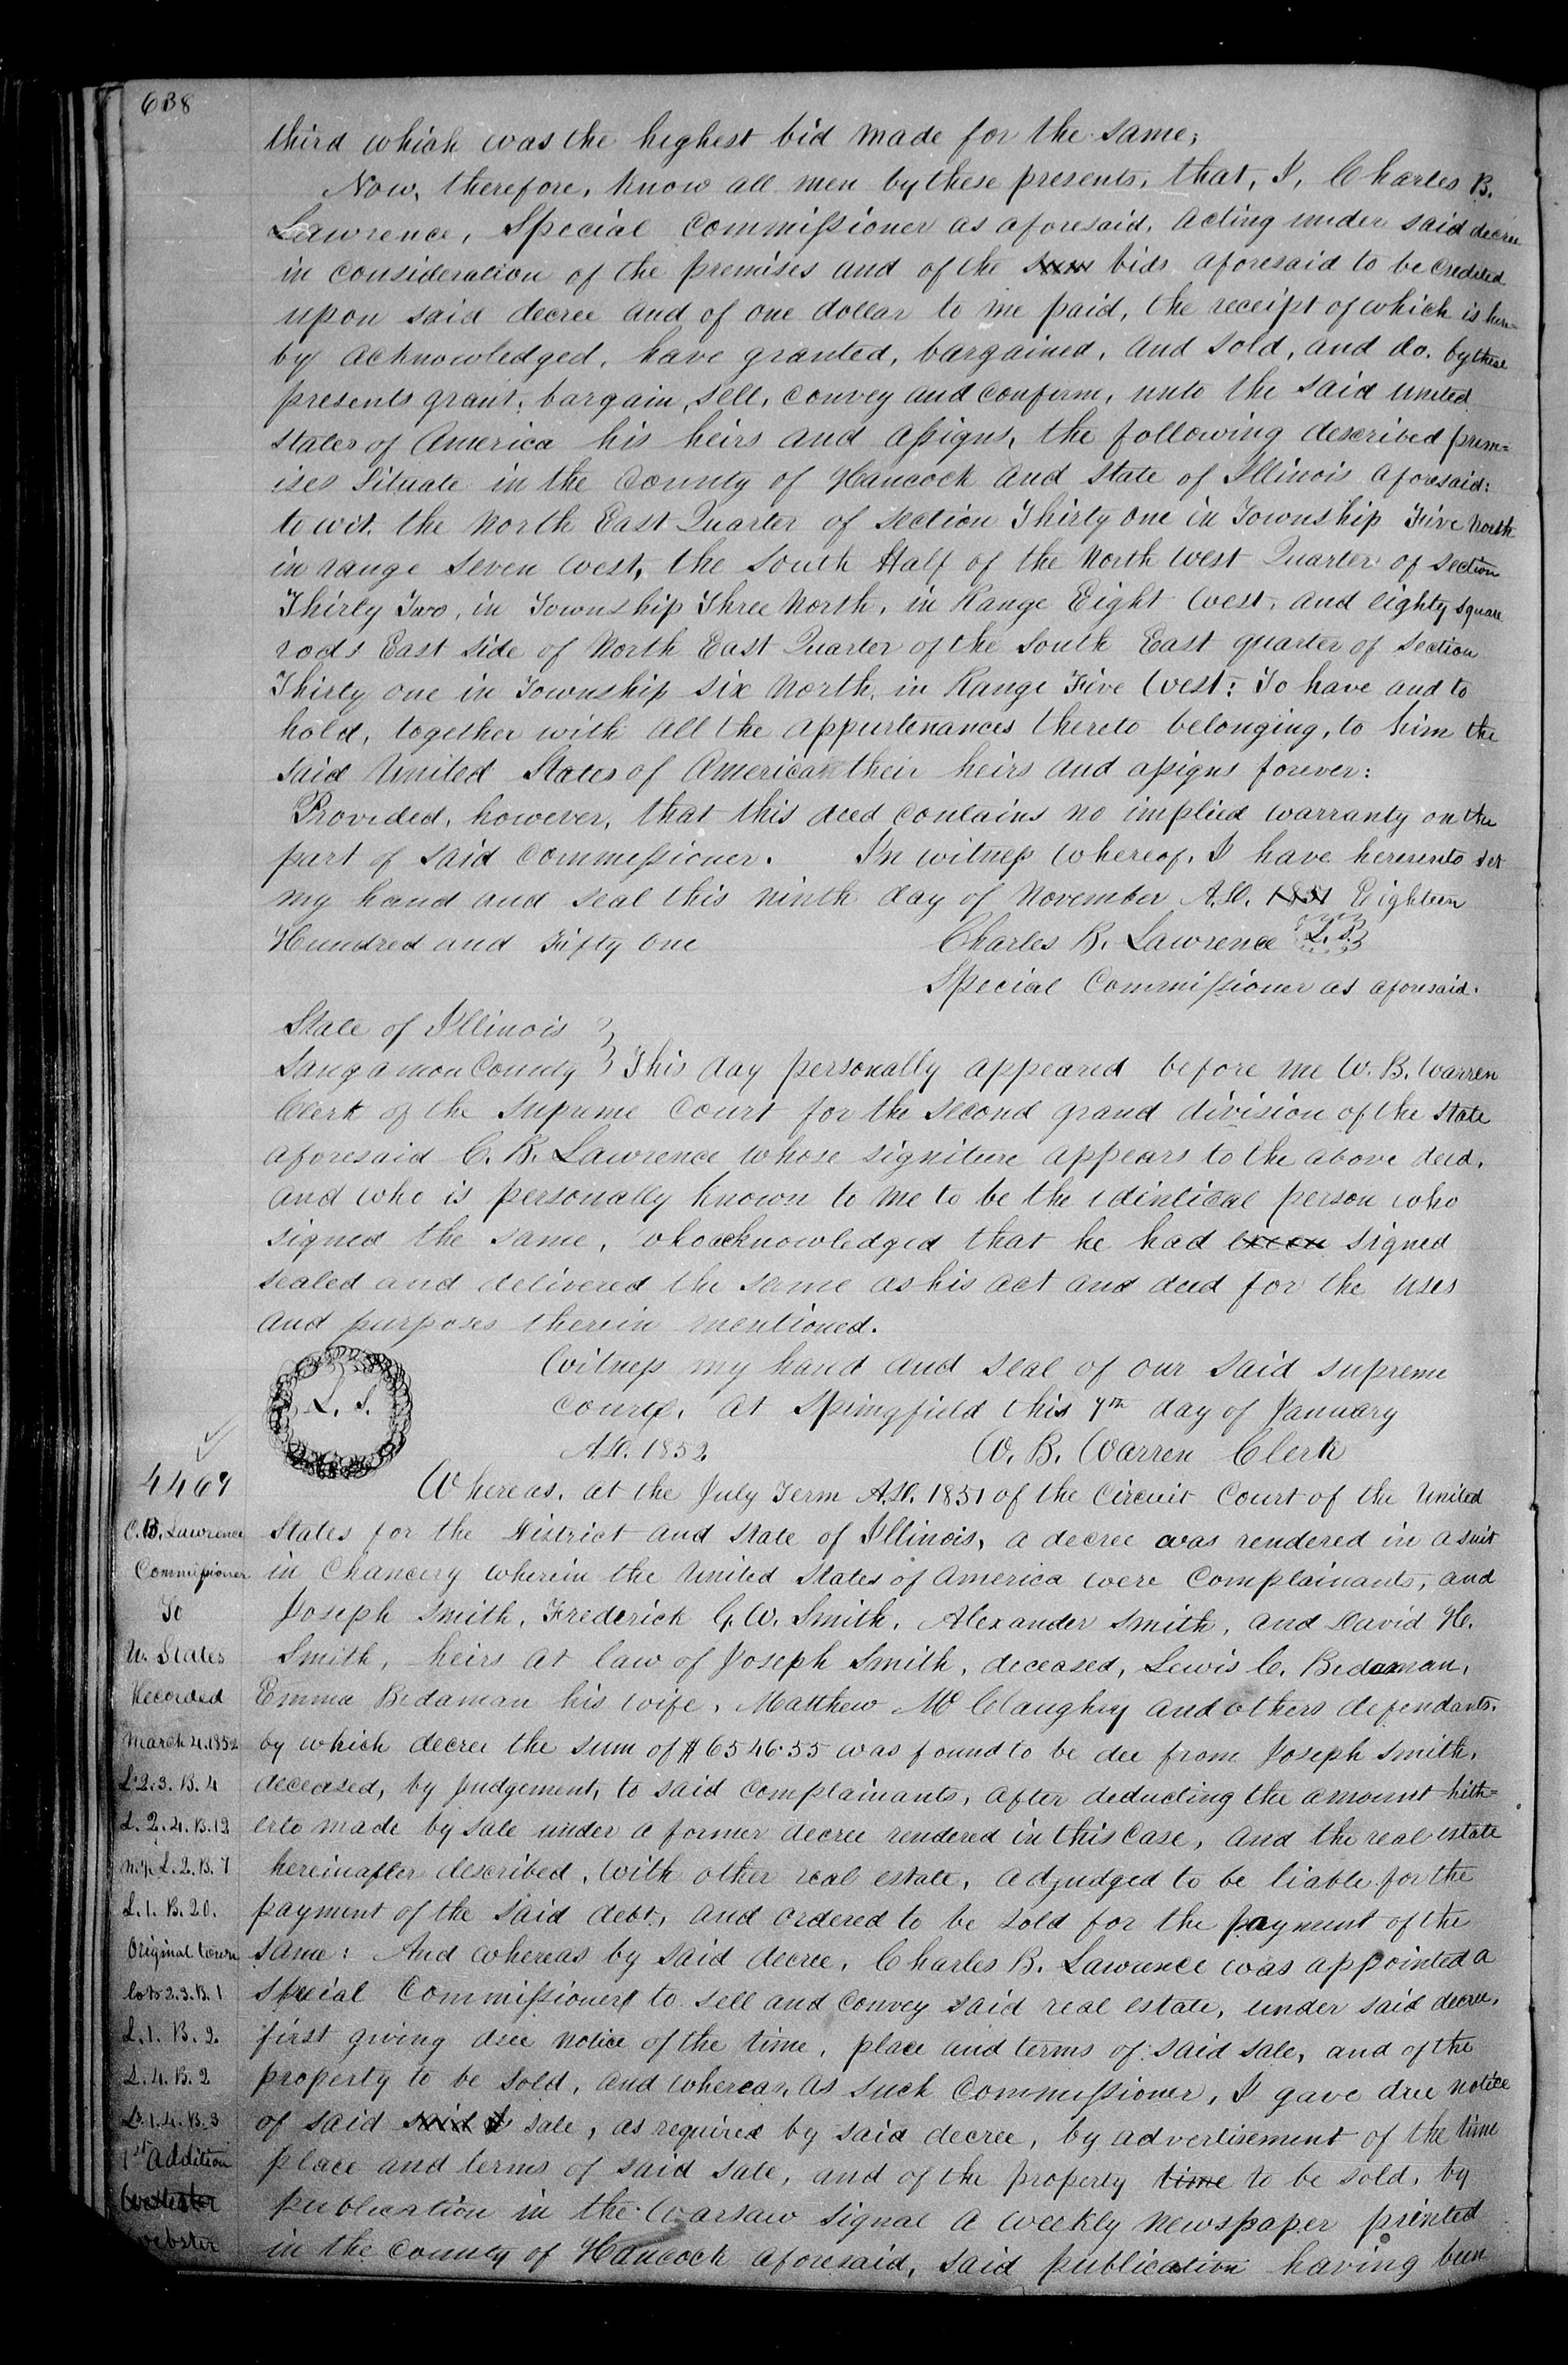 638
third which was the highest bid made for the same;
Now, therefore, know all men by these presents, that, I, Charles B.
Lawrence, Special Commissioner as aforesaid, acting under said decree
in consideration of the premises and of the bids aforesaid to be credited
upon said decree and of one dollar to me paid, the receipt of which is here=
by acknowledged, have granted, bargained, and sold, and do, by these
presents grant, bargain, sell, convey and confirm, unto the said United
States of America his heirs and assigns, the following described prem=
ises situate in the County of Hancock and State of Illinois aforesaid:
to wit, the North East Quarter of Section Thirty One in Township Five North
in range seven west, the South Half of the North West Quarter of Section
Thirty Two, in Township Three North, in Range Eight West, and eighty square
rods East side of North East Quarter of the South East quarter of Section
Thirty one in Township six North, in Range Five West: To have and to
hold, together with all the appurtenances thereto belonging, to him the
said United States of America their heirs and assigns forever:
Provided, however, that this deed contains no implied warranty on the
part of said Commissioner. In witness whereof, I have hereunto set
my hand and seal this ninth day of November A.D. 1851 Eighteen
Hundred and Fifty One Charles B. Lawrence L.S.
Special Commissioner as aforesaid.
State of Illinois
Sangamon County This day personally appeared before me W. B. Warren
Clerk of the Supreme Court for the second grand division of the state
aforesaid C. B. Lawrence whose signiture appears to the above deed,
and who is personally known to me to be the identical person who
signed the same, who acknowledged that he had been signed
sealed and delivered the same as his act and deed for the uses
and purposes therein mentioned.
L. S.
Witness my hand and seal of our said supreme
court, at Springfield this 7th day of January
A.D. 1852 W. B. Warren Clerk
4469
C. B. Lawrence
Commissioner
To
U. States
Recorded
March 4. 1852
L. 2. 3. B. 4
L. 2. 4. B. 12
L. 2. B. 7
L. 1. B. 20.
Original town
lots 2. 3. B. 1
L. 1. B. 2.
L. 4. B. 2
L. 1. 4. B. 3
1st Addition
Webster
Whereas, at the July Term A.D. 1851 of the Circuit Court of the United
States for the District and State of Illinois, a decree was rendered in a suit
in Chancery wherein the United States of America were Complainants, and
Joseph Smith, Frederick G. W. Smith, Alexander Smith, and David H.
Smith, heirs at law of Joseph Smith, deceased, Lewis C. Bedaman,
Emma Bedaman his wife, Matthew McClaughey and others defendants,
by which decree the sum of $6546.55 was found to be due from Joseph Smith,
deceased, by judgement, to said complainants, after deducting the amount hith=
erto made by sale under a former decree rendered in this case, and the real estate
hereinafter described, with other real estate, adjudged to be liable for the
payment of the said debt, and ordered to be sold for the payment of the
same: And whereas by said decree, Charles B. Lawrence was appointed a
special Commissioner to sell and convey said real estate, under said decree,
first giving due notice of the time, place and terms of said sale, and of the
property to be sold, and whereas, as such Commissioner, I gave due notice
of said said sale, as required by said decree, by advertisement of the time
place and terms of said sale, and of the property time to be sold, by
publication in the Warsaw Signal a weekly newspaper printed
in the County of Hancock aforesaid, said publication having been